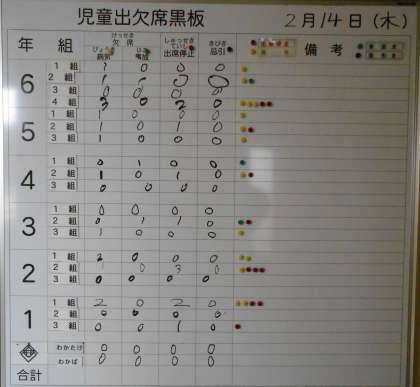 児童出欠席黒板 2月14日(木)
年 組 欠席 けっせき 病欠 びょ 事故 じこ 出席停止 しゅっせき ていし 忌引 きびき 備考
6 1組 1 0 0 0
2組 1 0
3組 0 0
4組 3 0 2 0
5 1組 1 0 0 0
2組 1 0 1 0
3組 1 0 0 0
4 1組 0 1 0 0
2組 1 0 1 0
3組 0 0 0 0
3 1組 0 0 0 0
2組 0 1 1 0
3組 1 0 0 0
2 1組 2 0 0 0
2組 1 0 3 0
3組 0 0 0 0
1 1組 2 0 2 0
2組 0 0 0 0
3組 0 0 1 0
わかたけ 0 0 0 0
合計 わかば 0 0 0 0